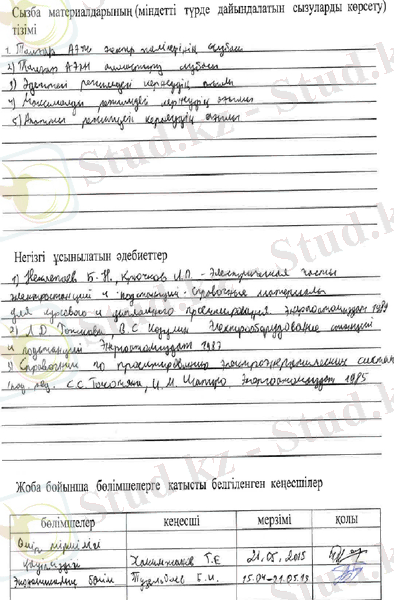 Сызба материалдарының (міндетті түрде дайындалатын сызуларды көрсету)
тізімі
1. Талғар АЭТН электр желісінің сұлбасы
2) Талғар АЭТН алмастыру сұлбасы
3) режимдегі кернеудің
4) Максималды режимдегі кернеудің
5) режимдегі кернеудің
Негізгі ұсынылатын әдебиеттер
1) Неклепаев Б.Н, Крючков И.П. - Электрическая часть
электростанций и подстанций. Справочные материалы
для курсового и дипломного проектирования. Энергоатомиздат 1989
2) Л.Д. Рожкова, В.С. Козулин Электрооборудование станций
и подстанций Энергоатомиздат 1987
3) Справочник по проектированию электроэнергетических систем
под ред. С.С. Рокотяна, И.М. Шапиро Энергоатомиздат 1985
Жоба бойынша бөлімшелерге қатысты белгіленген кеңесшілер
бөлімшелер кеңесші мерзімі қолы
Өмір тіршілігі
қауіпсіздігі Хакимжанов Т.Е 21.05.2013
Экономикалық бөлім Б.И. 15.04-21.05.13
Stud.kz